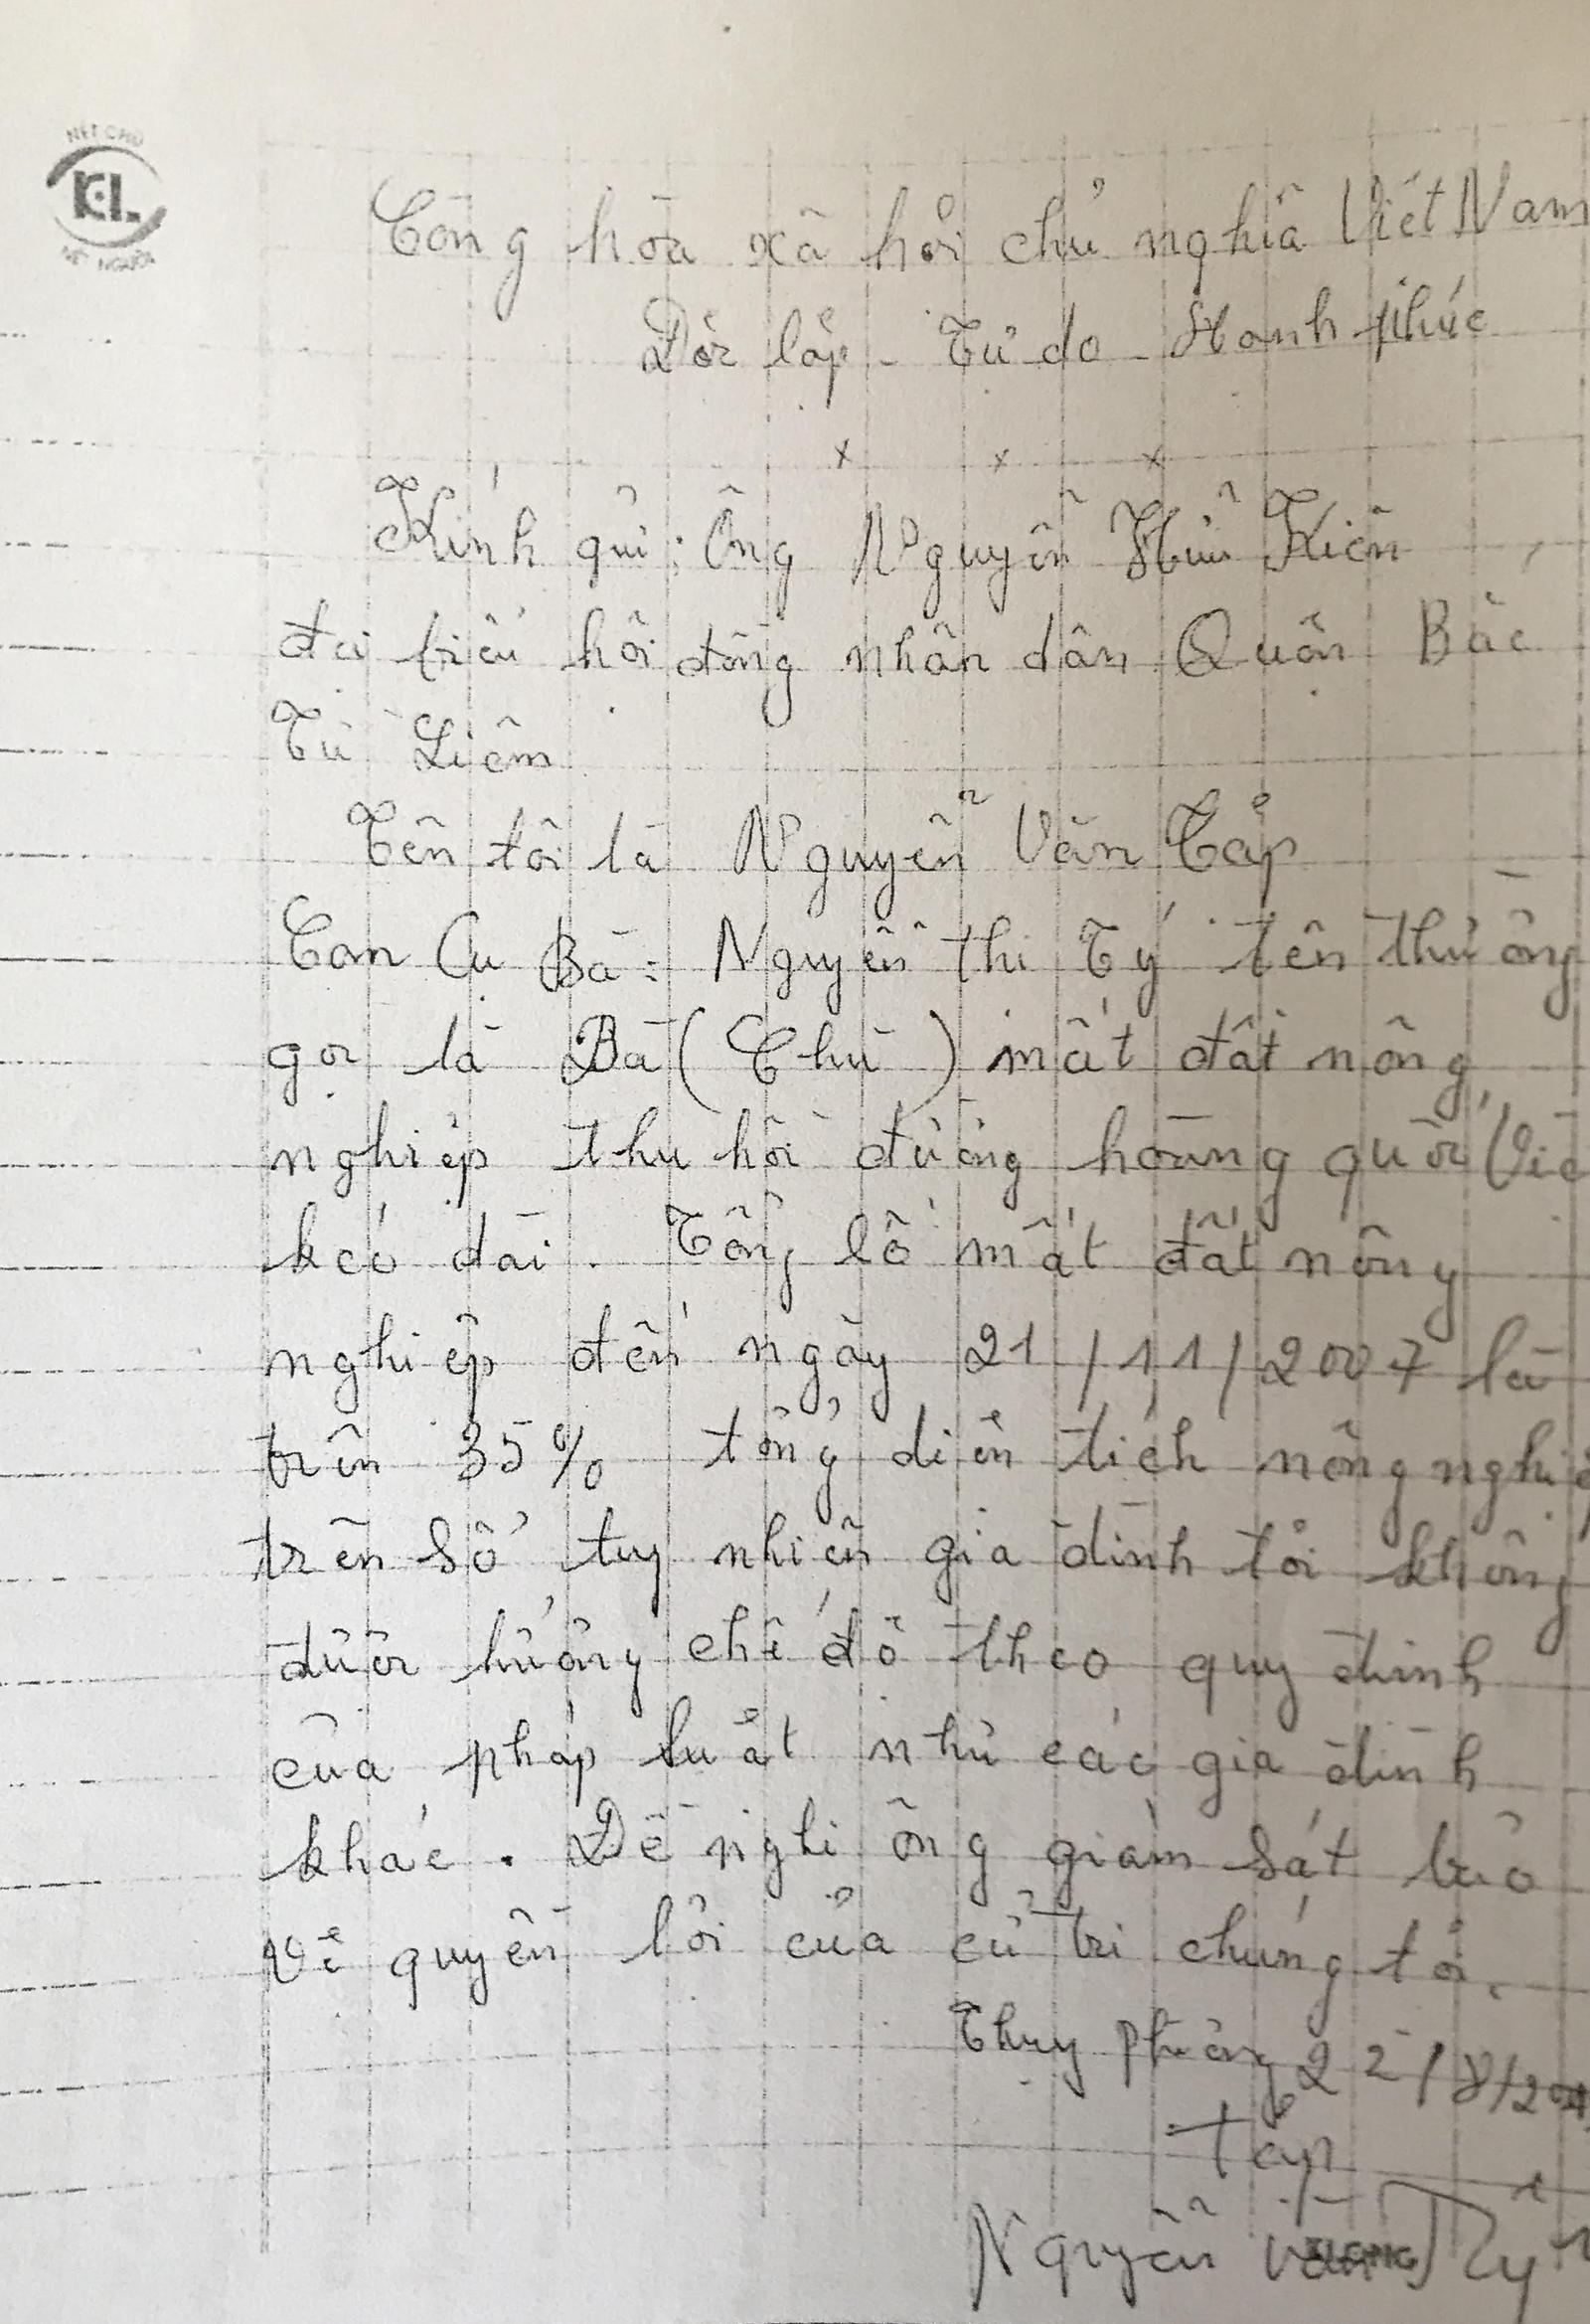 NÉT CHỮ
KL
NẾT NGƯỜI
Cộng hòa xã hội chủ nghĩa Việt Nam
Độc lập - Tự do - Hạnh phúc
x x x
Kính gửi: Ông Nguyễn Hữu Kiên
đại biểu hội đồng nhân dân Quận Bắc
Từ Liêm
Tên tôi là Nguyễn Văn Tập
Con Cụ Bà: Nguyễn thị Tý tên thường
gọi là Bà ( Chữ ) mất đất nông
nghiệp thu hồi đường hoàng quốc Việ
kéo dài. Tổng số mất đất nông
nghiệp đến ngày 21/11/2007 là
trên 35% tổng diện tích nông nghiệp
trên sổ tuy nhiên gia đình tôi không
được hưởng chế độ theo quy định
của pháp luật như các gia đình
khác. Đề nghị ông giám sát bảo
vệ quyền lợi của cử tri chúng tôi.
Thụy Phương 22/8/20
Tập
Nguyễn Văn
KLONG